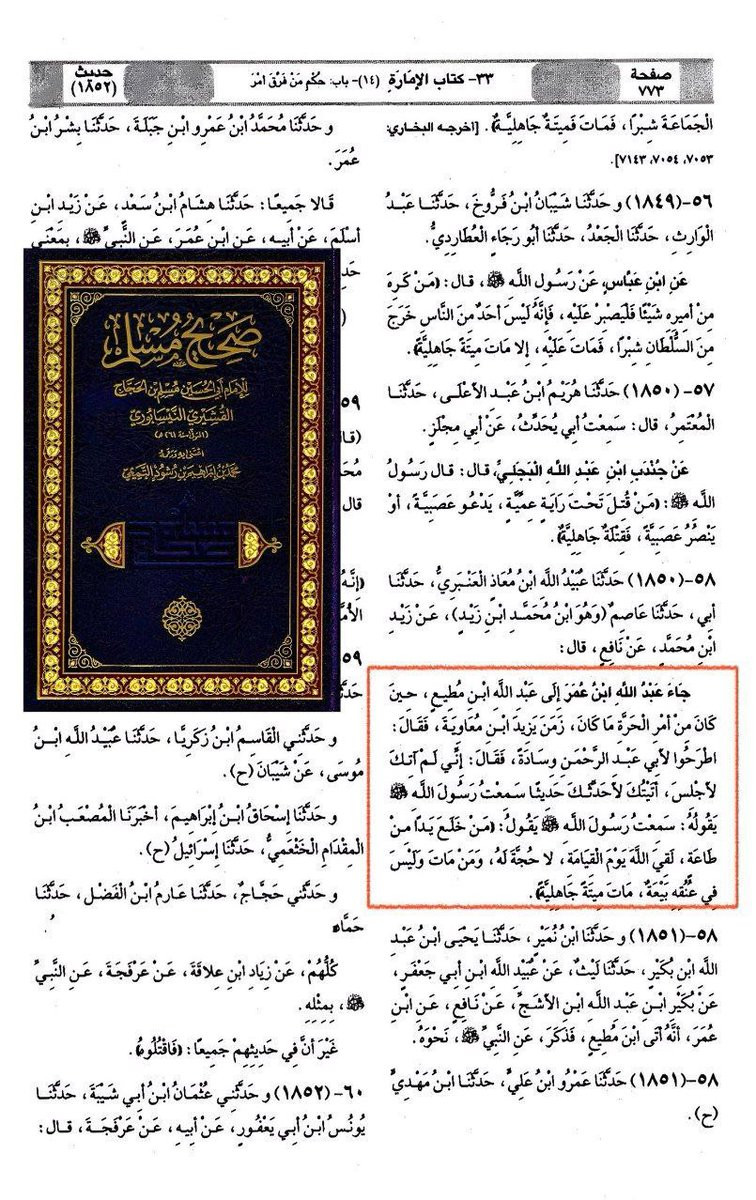 صفحة
٧٧٣
٣٣- كتاب الإمَارَةِ (١٤)- باب: حُكْم مَنْ فَرَّقَ أمْرَ
حديث
(١٨٥٢)
الْجَمَاعَةَ شِبْرًا، فَمَاتَ فَمِيتَةٌ جَاهِلِيَّةٌ﴾. [أخرجه البخاري:
٧٠٥٣، ٧٠٥٤، ٧١٤٣].
٥٦-(١٨٤٩) و حَدَّثَنَا شَيْبَانُ ابْنُ فَرُّوخَ، حَدَّثَنَا عَبْدُ
الْوَارِثِ، حَدَّثَنَا الْجَعْدُ، حَدَّثَنَا أبُو رَجَاءٍ الْعُطَارِدِيُّ.
عَنِ ابْنِ عَبَّاسٍ، عَنْ رَسُولِ اللَّهِ ﷺ، قال: ﴿مَنْ كَرِهَ
مِنْ أمِيرِهِ شَيْئًا فَلْيَصْبِرْ عَلَيْهِ، فَإنَّهُ لَيْسَ أحَدٌ مِنَ النَّاسِ خَرَجَ
مِنَ السُّلْطَانِ شِبْرًا، فَمَاتَ عَلَيْهِ، إلا مَاتَ مِيتَةً جَاهِلِيَّةً﴾.
٥٧-(١٨٥٠) حَدَّثَنَا هُرَيْمُ ابْنُ عَبْدِ الأعْلَى، حَدَّثَنَا
الْمُعْتَمِرُ، قال: سَمِعْتُ أبِي يُحَدِّثُ، عَنْ أبِي مِجْلَزٍ.
عَنْ جُنْدَبِ ابْنِ عَبْدِ اللَّهِ الْبَجَلِيِّ، قال: قال رَسُولُ
اللَّهِ ﷺ: ﴿مَنْ قُتِلَ تَحْتَ رَايَةٍ عِمِّيَّةٍ، يَدْعُو عَصَبِيَّةً، أوْ
يَنْصُرُ عَصَبِيَّةً، فَقِتْلَةٌ جَاهِلِيَّةٌ﴾.
٥٨-(١٨٥٠) حَدَّثَنَا عُبَيْدُ اللَّهِ ابْنُ مُعَاذٍ الْعَنْبَرِيُّ، حَدَّثَنَا
أبِي، حَدَّثَنَا عَاصِمٌ (وَهُوَ ابْنُ مُحَمَّدِ ابْنِ زَيْدٍ)، عَنْ زَيْدِ
ابْنِ مُحَمَّدٍ، عَنْ نَافِعٍ، قال:
جَاءَ عَبْدُ اللَّهِ ابْنُ عُمَرَ إلَى عَبْدِ اللَّهِ ابْنِ مُطِيعٍ، حِينَ
كَانَ مِنْ أمْرِ الْحَرَّةِ مَا كَانَ، زَمَنَ يَزِيدَ ابْنِ مُعَاوِيَةَ، فَقَالَ:
اطْرَحُوا لأبِي عَبْدِ الرَّحْمَنِ وِسَادَةً، فَقَالَ: إنِّي لَمْ آتِكَ
لأجْلِسَ، أتَيْتُكَ لأحَدِّثَكَ حَدِيثًا سَمِعْتُ رَسُولَ اللَّهِ ﷺ
يَقُولُهُ: سَمِعْتُ رَسُولَ اللَّهِ ﷺ يَقُولُ: ﴿مَنْ خَلَعَ يَدًا مِنْ
طَاعَةٍ، لَقِيَ اللَّهَ يَوْمَ الْقِيَامَةِ، لا حُجَّةَ لَهُ، وَمَنْ مَاتَ وَلَيْسَ
فِي عُنُقِهِ بَيْعَةٌ، مَاتَ مِيتَةً جَاهِلِيَّةً﴾.
٥٨-(١٨٥١) و حَدَّثَنَا ابْنُ نُمَيْرٍ، حَدَّثَنَا يَحْيَى ابْنُ عَبْدِ
اللَّهِ ابْنِ بُكَيْرٍ، حَدَّثَنَا لَيْثٌ، عَنْ عُبَيْدِ اللَّهِ ابْنِ أبِي جَعْفَرٍ،
عَنْ بُكَيْرِ ابْنِ عَبْدِ اللَّهِ ابْنِ الأشَجِّ، عَنْ نَافِعٍ، عَنِ ابْنِ
عُمَرَ، أنَّهُ أتَى ابْنَ مُطِيعٍ، فَذَكَرَ، عَنِ النَّبِيِّ ﷺ، نَحْوَهُ.
٥٨-(١٨٥١) حَدَّثَنَا عَمْرُو ابْنُ عَلِيٍّ، حَدَّثَنَا ابْنُ مَهْدِيٍّ
(ح).
و حَدَّثَنَا مُحَمَّدُ ابْنُ عَمْرِو ابْنِ جَبَلَةَ، حَدَّثَنَا بِشْرُ ابْنُ
عُمَرَ.
قَالا جَمِيعًا: حَدَّثَنَا هِشَامُ ابْنُ سَعْدٍ، عَنْ زَيْدِ ابْنِ
أسْلَمَ، عَنْ أبِيهِ، عَنِ ابْنِ عُمَرَ، عَنِ النَّبِيِّ ﷺ، بِمَعْنَى
٥٩
(قا
مُحَمَّ
قال
﴿إنَّهُ
الأُمَّ
٥٩
حَدَّثَنَ
صَحِيحُ مُسْلِم
للإمام أبي الحسين مسلم بن الحجاج
القشيري النيسابوري
(المتوفى سنة ٢٦١ هـ)
اعتنى به ورقمه
محمد بن إبراهيم بن رشود التميمي
و حَدَّثَنِي الْقَاسِمُ ابْنُ زَكَرِيَّا، حَدَّثَنَا عُبَيْدُ اللَّهِ ابْنُ
مُوسَى، عَنْ شَيْبَانَ (ح).
و حَدَّثَنَا إسْحَاقُ ابْنُ إبْرَاهِيمَ، أخْبَرَنَا الْمُصْعَبُ ابْنُ
الْمِقْدَامِ الْخَثْعَمِيُّ، حَدَّثَنَا إسْرَائِيلُ (ح).
و حَدَّثَنِي حَجَّاجٌ، حَدَّثَنَا عَارِمُ ابْنُ الْفَضْلِ، حَدَّثَنَا
حَمَّاد
كُلُّهُمْ، عَنْ زِيَادِ ابْنِ عِلاقَةَ، عَنْ عَرْفَجَةَ، عَنِ النَّبِيِّ
ﷺ، بِمِثْلِهِ.
غَيْرَ أنَّ فِي حَدِيثِهِمْ جَمِيعًا: ﴿فَاقْتُلُوهُ﴾.
٦٠-(١٨٥٢) و حَدَّثَنِي عُثْمَانُ ابْنُ أبِي شَيْبَةَ، حَدَّثَنَا
يُونُسُ ابْنُ أبِي يَعْفُورٍ، عَنْ أبِيهِ، عَنْ عَرْفَجَةَ، قال: